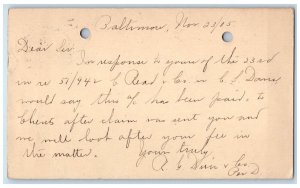 Baltimore, Nov. 23/05.
Dear Sir.
In response to yours of the 23rd
in re 51942 C Read & Co. v. C S Davis
would say this % has been paid to
Clients after claim was sent you and
we will look after your fee in
the matter. Yours truly
R. G. Dun & Co.
Per D